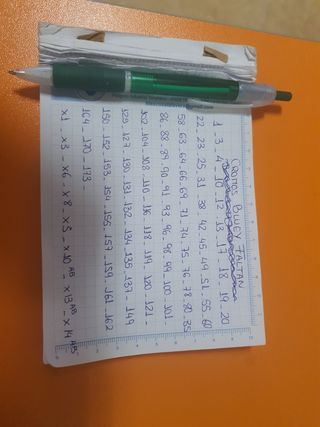 CROMOS BLUEY FALTAN
1 - 3 - 4 - 10 - 12 - 13 - 17 - 18 - 19 - 20
22 - 23 - 25 - 31 - 38 - 42 - 45 - 49 - 51 - 55 - 60
63 - 64 - 66 - 69 - 71 - 74 - 75 - 76 - 78 - 80 -
86 - 88 - 89 - 90 - 91 - 93 - 96 - 98 - 99 - 100 - 101 -
102 - 104 - 108 - 110 - 116 - 118 - 119 - 120 - 121 -
127 - 130 - 131 - 132 - 134 - 135 - 137 - 149
150 - 152 - 153 - 154 - 155 - 157 - 159 - 161 - 162
164 - 170 - 173.
X1 - X3 - X6 - X8 - X10 AB - X13 AB - X14 AB